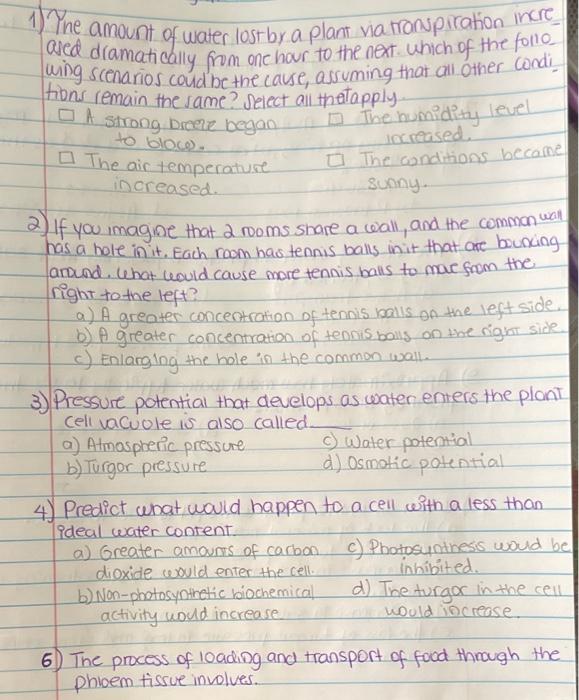 1) The amount of water lost by a plant via transpiration incre_
ased dramatically from one hour to the next. which of the follo_
wing scenarios coud be the cause, assuming that all other condi_
tions remain the same? Select all that apply.
☐ A strong breeze began ☐ The humidity level
to blow. increased.
☐ The air temperature ☐ The conditions became
increased. sunny.
2) If you imagine that 2 rooms share a wall, and the common wall
has a hole in it. Each room has tennis balls in it that are bouncing
around. What would cause more tennis balls to move from the
right to the left?
a) A greater concentration of tennis balls on the left side.
b) A greater concentration of tennis balls on the right side.
c) Enlarging the hole in the common wall.
3) Pressure potential that develops as water enters the plant
cell vacuole is also called
a) Atmospheric pressure c) Water potential
b) Turgor pressure d) Osmotic potential
4) Predict what would happen to a cell with a less than
ideal water content.
a) Greater amounts of carbon c) Photosyntness would be
dioxide would enter the cell. inhibited.
b) Non-photosynthetic biochemical d) The turgor in the cell
activity would increase would increase.
6) The process of loading and transport of food through the
phloem tissue involves.